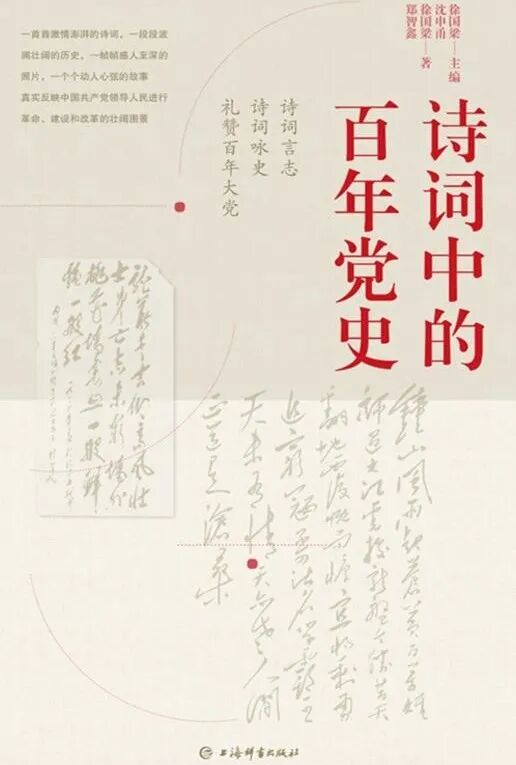 诗词中的
百年党史
徐国梁—主编
沈申甬
徐国梁—著
郑智鑫
诗词言志
诗词咏史
礼赞百年大党
一首首激情澎湃的诗词、一段段波
澜壮阔的历史、一帧帧感人至深的
照片，一个个动人心弦的故事
真实反映中国共产党领导人民进行
革命、建设和改革的壮阔图景
鐘山風雨起蒼黄百万雄
師過大江虎踞龍盤今勝昔天
翻地覆慨而慷宜將剩勇
追窮寇不可沽名學霸王
天若有情天亦老人間
正道是滄桑
上海辞书出版社